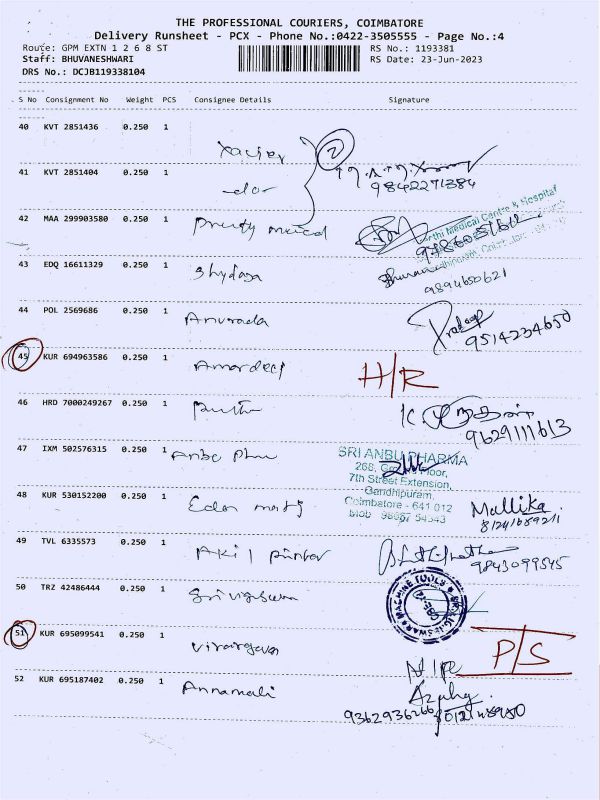 THE PROFESSIONAL COURIERS, COIMBATORE
Delivery Runsheet - PCX - Phone No.:0422-3505555 - Page No.:4
Route: GPM EXTN 1 2 6 8 ST RS No.: 1193381
Staff: BHUVANESHWARI RS Date: 23-Jun-2023
DRS No.: DCJB119338104
S No Consignment No Weight PCS Consignee Details Signature
40 KVT 2851436 0.250 1
Xavier 2
41 KVT 2851404 0.250 1
do 9842271384
42 MAA 299903580 0.250 1
Medical Centre & Hospital
43 EDQ 16611329 0.250 1
9894650621
44 POL 2569686 0.250 1 Anurada
Pradeep 9514234650
45 KUR 694963586 0.250 1 Amardeep H/R
46 HRD 7000249267 0.250 1
9629111613
47 IXM 502576315 0.250 1
SRI ANBU PHARMA
7th Street Extension,
Gandhipuram,
Coimbatore - 641 012
48 KUR 530152200 0.250 1
Mallika
49 TVL 6335573 0.250 1
9843099545
50 TRZ 42486444 0.250 1
MACHINE TOOLS
51 KUR 695099541 0.250 1
P/S
52 KUR 695187402 0.250 1 Annamali